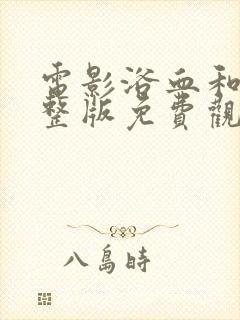 電影浴血和
整版免費觀
八島時